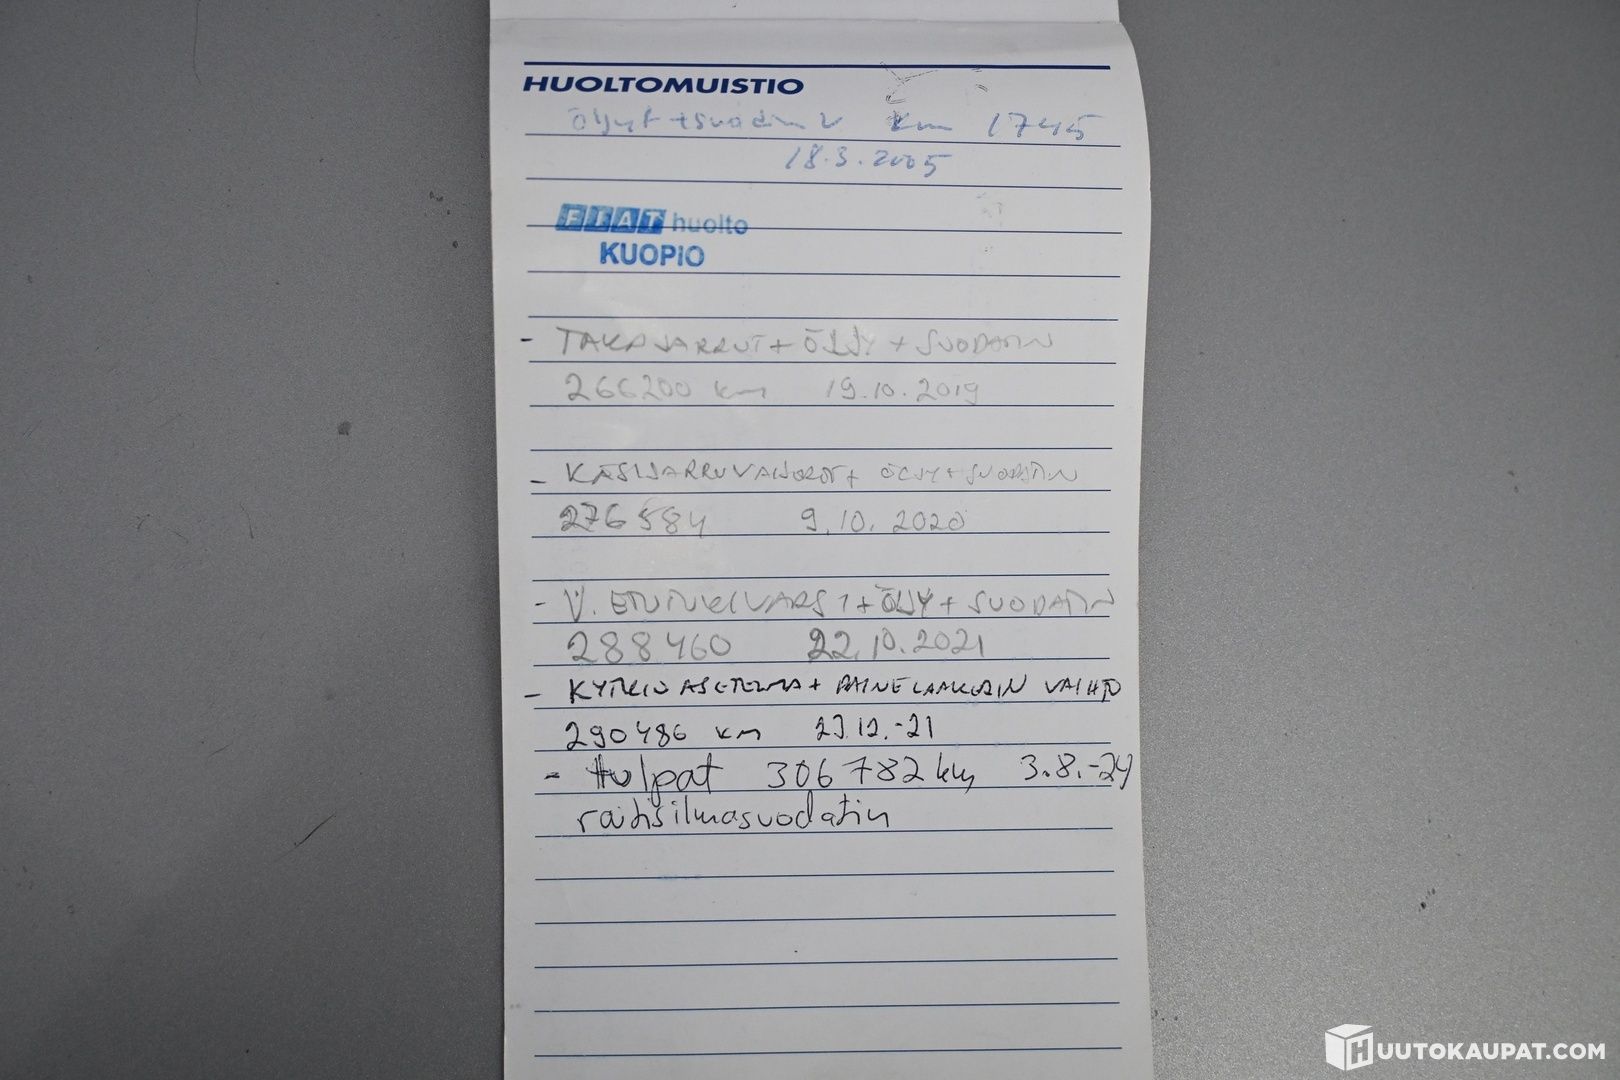 HUOLTOMUISTIO
öljyt + suodin v km 1745
18.3.2005
FIAT huolto
KUOPIO
- TAKAJARRUT + ÖLJY + SUODATIN
266200 km 19.10.2019
- KÄSIJARRUVAIJERIT + ÖLJY + SUODATIN
276584 9.10.2020
- V. ETUTUKIVARSI + ÖLJY + SUODATIN
288460 22.10.2021
- KYTKIN ASETELMA + PAINELAAKERIN VAIHTO
290486 km 23.12.-21
- Hulpat 306782 km 3.8.-24
raitisilmasuodatin
HUUTOKAUPAT.COM